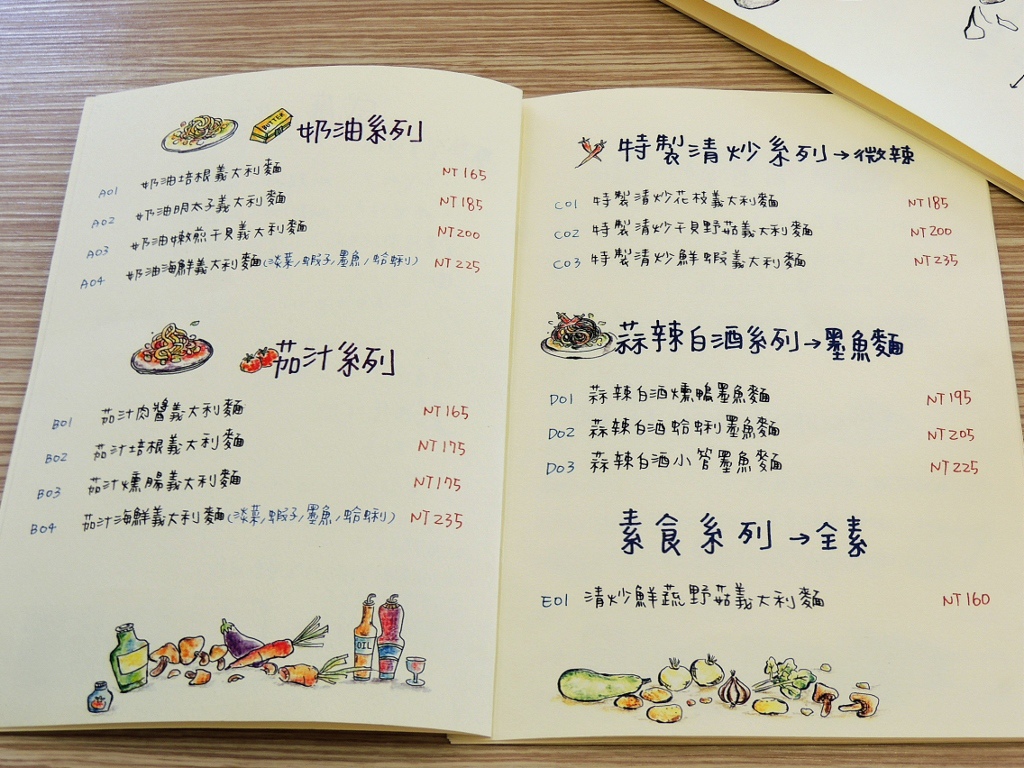 BUTTER
奶油系列
A01 奶油培根義大利麵 NT165
A02 奶油明太子義大利麵 NT185
A03 奶油嫩煎干貝義大利麵 NT200
A04 奶油海鮮義大利麵(淡菜/蝦子/墨魚/蛤蜊) NT225
茄汁系列
B01 茄汁肉醬義大利麵 NT165
B02 茄汁培根義大利麵 NT175
B03 茄汁燻腸義大利麵 NT175
B04 茄汁海鮮義大利麵(淡菜/蝦子/墨魚/蛤蜊) NT235
OIL
特製清炒系列→微辣
C01 特製清炒花枝義大利麵 NT185
C02 特製清炒干貝野菇義大利麵 NT200
C03 特製清炒鮮蝦義大利麵 NT235
蒜辣白酒系列→墨魚麵
D01 蒜辣白酒燻鴨墨魚麵 NT195
D02 蒜辣白酒蛤蜊墨魚麵 NT205
D03 蒜辣白酒小管墨魚麵 NT225
素食系列→全素
E01 清炒鮮蔬野菇義大利麵 NT160